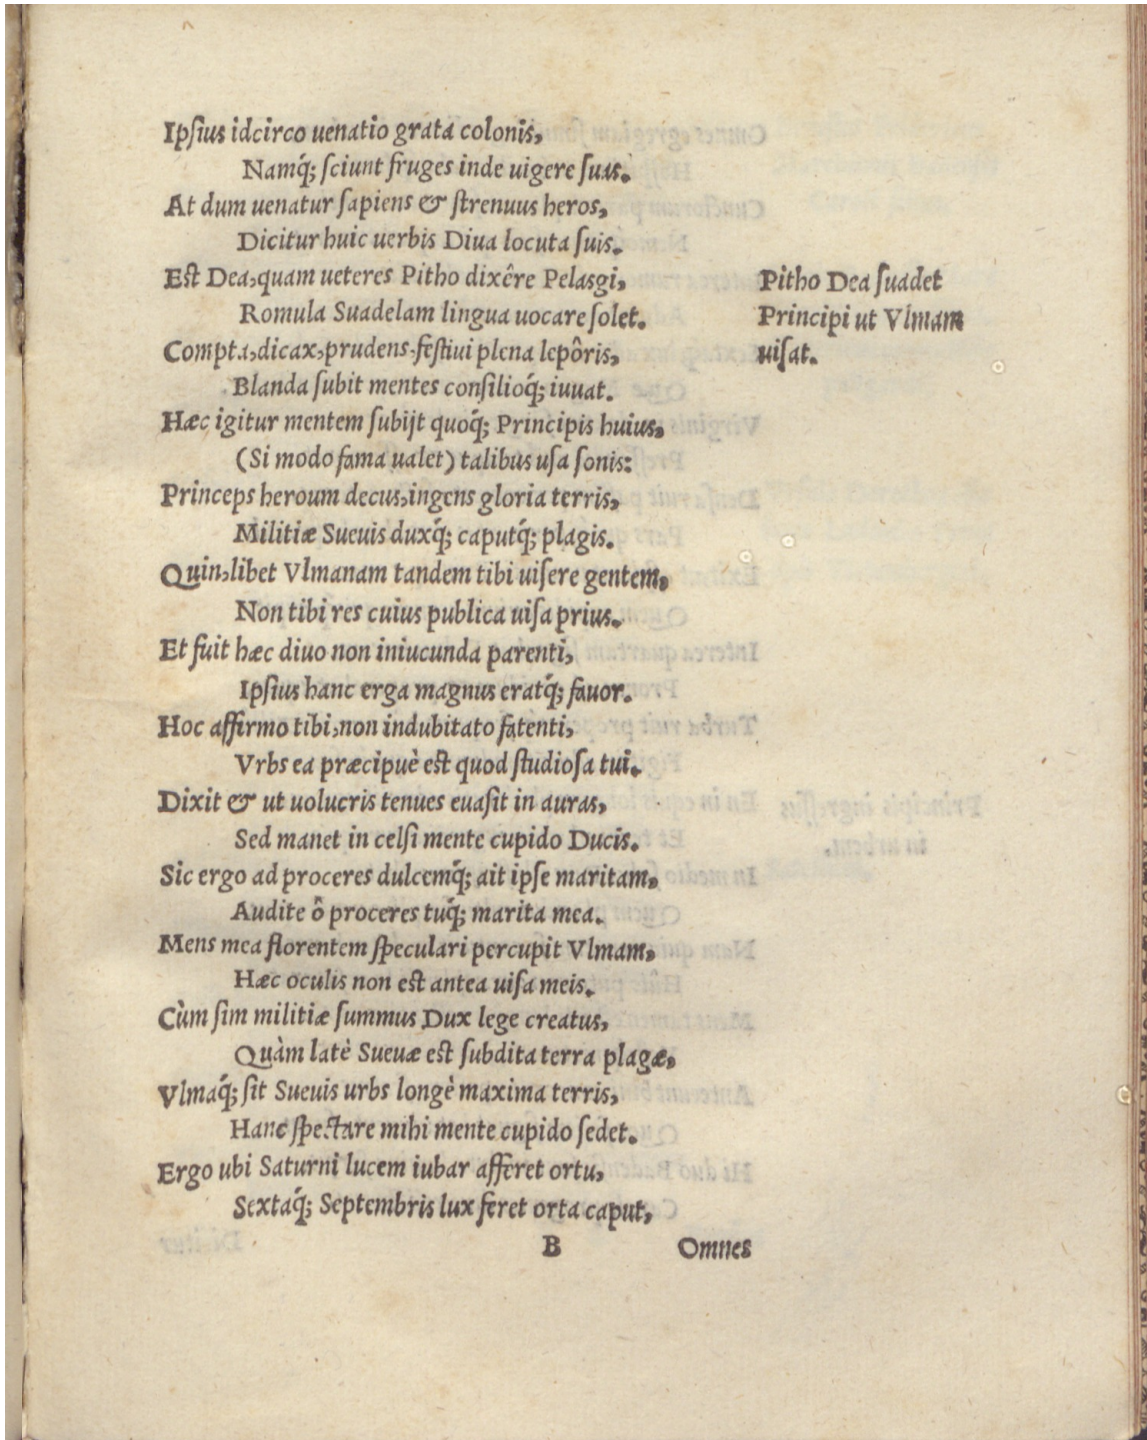 Ipſius idcirco uenatio grata colonis,
Namq́; ſciunt fruges inde uigere ſuas.
At dum uenatur ſapiens & ſtrenuus heros,
Dicitur huic uerbis Diua locuta ſuis.
Est Dea, quam ueteres Pitho dixêre Pelasgi,
Romula Suadelam lingua uocare ſolet.
Compta, dicax, prudens, feſtiui plena lepôris,
Blanda ſubit mentes conſilioq́; iuuat.
Hæc igitur mentem ſubijt quoq́; Principis huius,
(Si modo fama ualet) talibus uſa ſonis:
Princeps heroum decus, ingens gloria terris,
Militiæ Sueuis duxq́; caputq́; plagis.
Quin, libet Vlmanam tandem tibi uiſere gentem,
Non tibi res cuius publica uiſa prius.
Et fuit hæc diuo non iniucunda parenti,
Ipſius hanc erga magnus eratq́; fauor.
Hoc affirmo tibi, non indubitato fatenti,
Vrbs ea præcipuè est quod ſtudioſa tui.
Dixit & ut uolucris tenues euaſit in auras,
Sed manet in celſi mente cupido Ducis.
Sic ergo ad proceres dulcemq́; ait ipſe maritam,
Audite ô proceres tuq́; marita mea.
Mens mea florentem ſpeculari percupit Vlmam,
Hæc oculis non est antea uiſa meis.
Cùm ſim militiæ ſummus Dux lege creatus,
Quàm latè Sueuæ est ſubdita terra plagæ,
Vlmaq́; ſit Sueuis urbs longè maxima terris,
Hanc ſpectare mihi mente cupido ſedet.
Ergo ubi Saturni lucem iubar afferet ortu,
Sextaq́; Septembris lux feret orta caput,
B Omnes
Pitho Dea ſuadet
Principi ut Vlmam
uiſat.